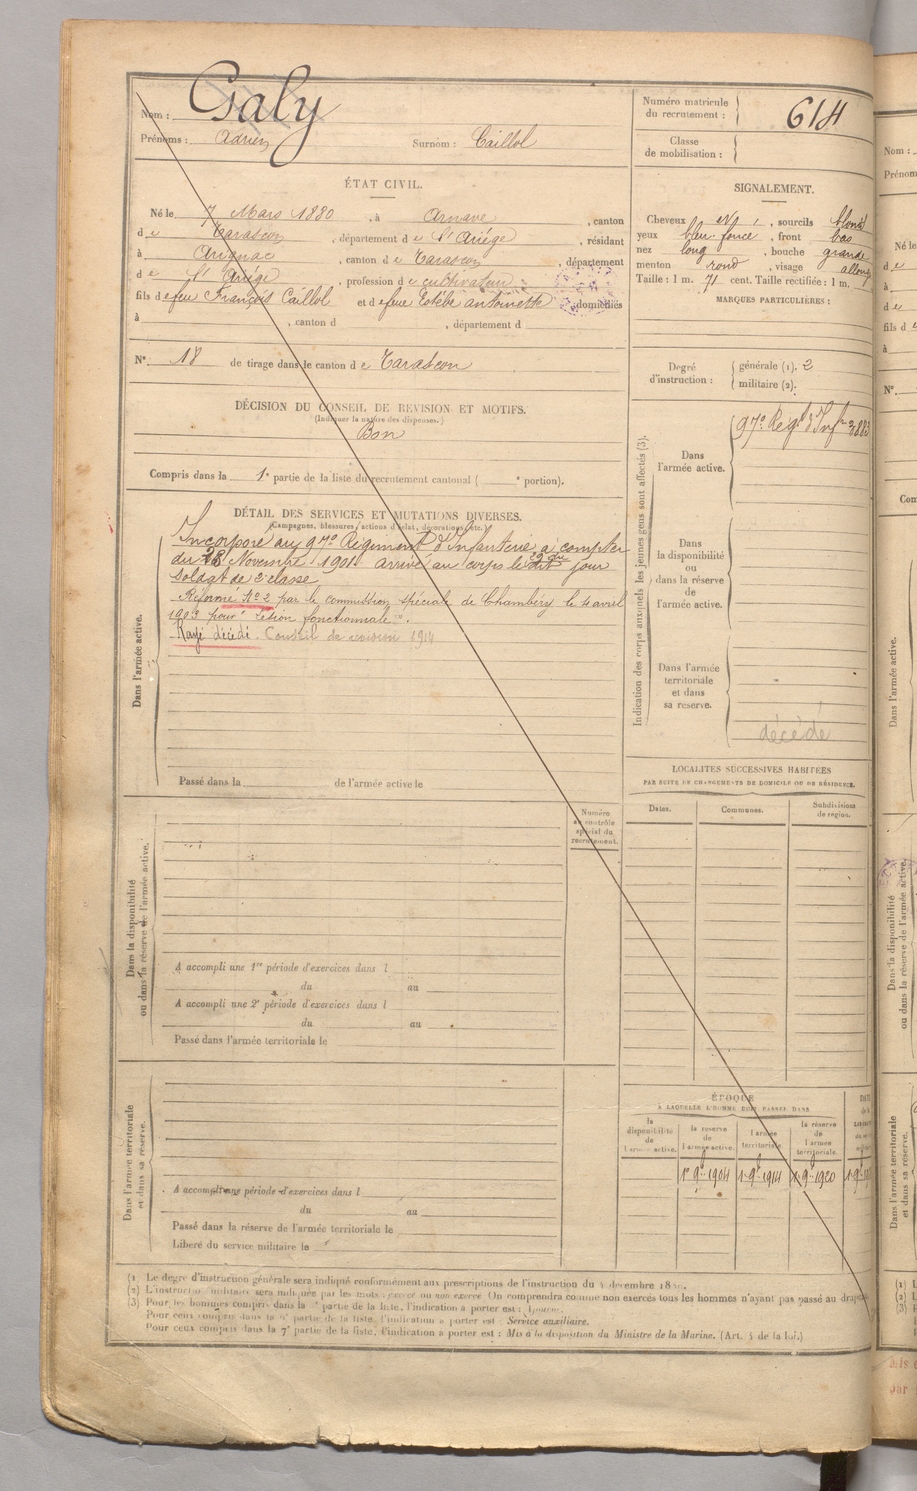 Nom : Galy
Prénoms : Adrien Surnom : Caillol
Numéro matricule du recrutement : 614
Classe de mobilisation :
ÉTAT CIVIL.
Né le 7 Mars 1880, à Arnave, canton
de Tarascon, département de l'Ariége, résidant
à Arignac, canton de Tarascon, département
de l'Ariége, profession de cultivateur
fils de feu François Caillol et de feue Estèbe antoinette, domiciliés
à , canton d , département d
N° 18 de tirage dans le canton de Tarascon
DÉCISION DU CONSEIL DE REVISION ET MOTIFS.
(Indiquer la nature des dispenses.)
Bon
Compris dans la 1e partie de la liste du recrutement cantonal ( e portion).
DÉTAIL DES SERVICES ET MUTATIONS DIVERSES.
(Campagnes, blessures, actions d'éclat, décorations, etc.)
Incorporé au 97e Régiment d'Infanterie à compter
du Novembre 1901 arrivé au corps le dit jour
Soldat de 2e classe
Réformé No 2 par le commission spéciale de Chambéry le 4 avril
1903 pour lésion fonctionnale
Rayé décédé. Conseil de révision 1914
Dans l'armée active.
Passé dans la de l'armée active le
Numéro au contrôle spécial du recrutement.
Dans la disponibilité
ou dans la réserve de l'armée active.
A accompli une 1re période d'exercices dans l
du au
A accompli une 2e période d'exercices dans l
du au
Passé dans l'armée territoriale le
Dans l'armée territoriale
et dans sa réserve.
A accompli une période d'exercices dans l
du au
Passé dans la réserve de l'armée territoriale le
Libéré du service militaire le
SIGNALEMENT.
Cheveux , sourcils blond
yeux bleu foncé, front bas
nez long, bouche grande
menton rond, visage allongé
Taille : 1 m. 71 cent. Taille rectifiée : 1 m.
MARQUES PARTICULIÈRES :
Degré d'instruction :
générale (1). 2
militaire (2).
Indication des corps auxquels les jeunes gens sont affectés (3).
Dans
l'armée active.
97e Regt d'Infie
Dans
la disponibilité
ou dans la réserve
de
l'armée active.
Dans l'armée
territoriale
et dans
sa reserve.
décédé
LOCALITES SUCCESSIVES HABITEES
PAR SUITE DE CHANGEMENTS DE DOMICILE OU DE RÉSIDENCE.
Dates. Communes. Subdivisions de region.
ÉPOQUE
A LAQUELLE L'HOMME DOIT PASSER DANS
la disponibilité de l'armée active.
la reserve de l'armée active.
l'armée territoriale.
la réserve de l'armée territoriale.
1er 9bre 1904 1er 9bre 1914 1er 9bre 1920
(1) Le degre d'instruction générale sera indiqué conformément aux prescriptions de l'instruction du 4 décembre
(2) L'instruction militaire sera indiquée par les mots : exercé ou non exercé On comprendra comme non exercés tous les hommes n'ayant pas passé au
(3) Pour les hommes compris dans la partie de la liste, l'indication a porter est :
Pour ceux compris dans la partie de la liste, l'indication a porter est : Service auxiliaire.
Pour ceux compris dans la 7e partie de la liste, l'indication a porter est : Mis à la disposition du Ministre de la Marine. (Art. 4 de la loi.)